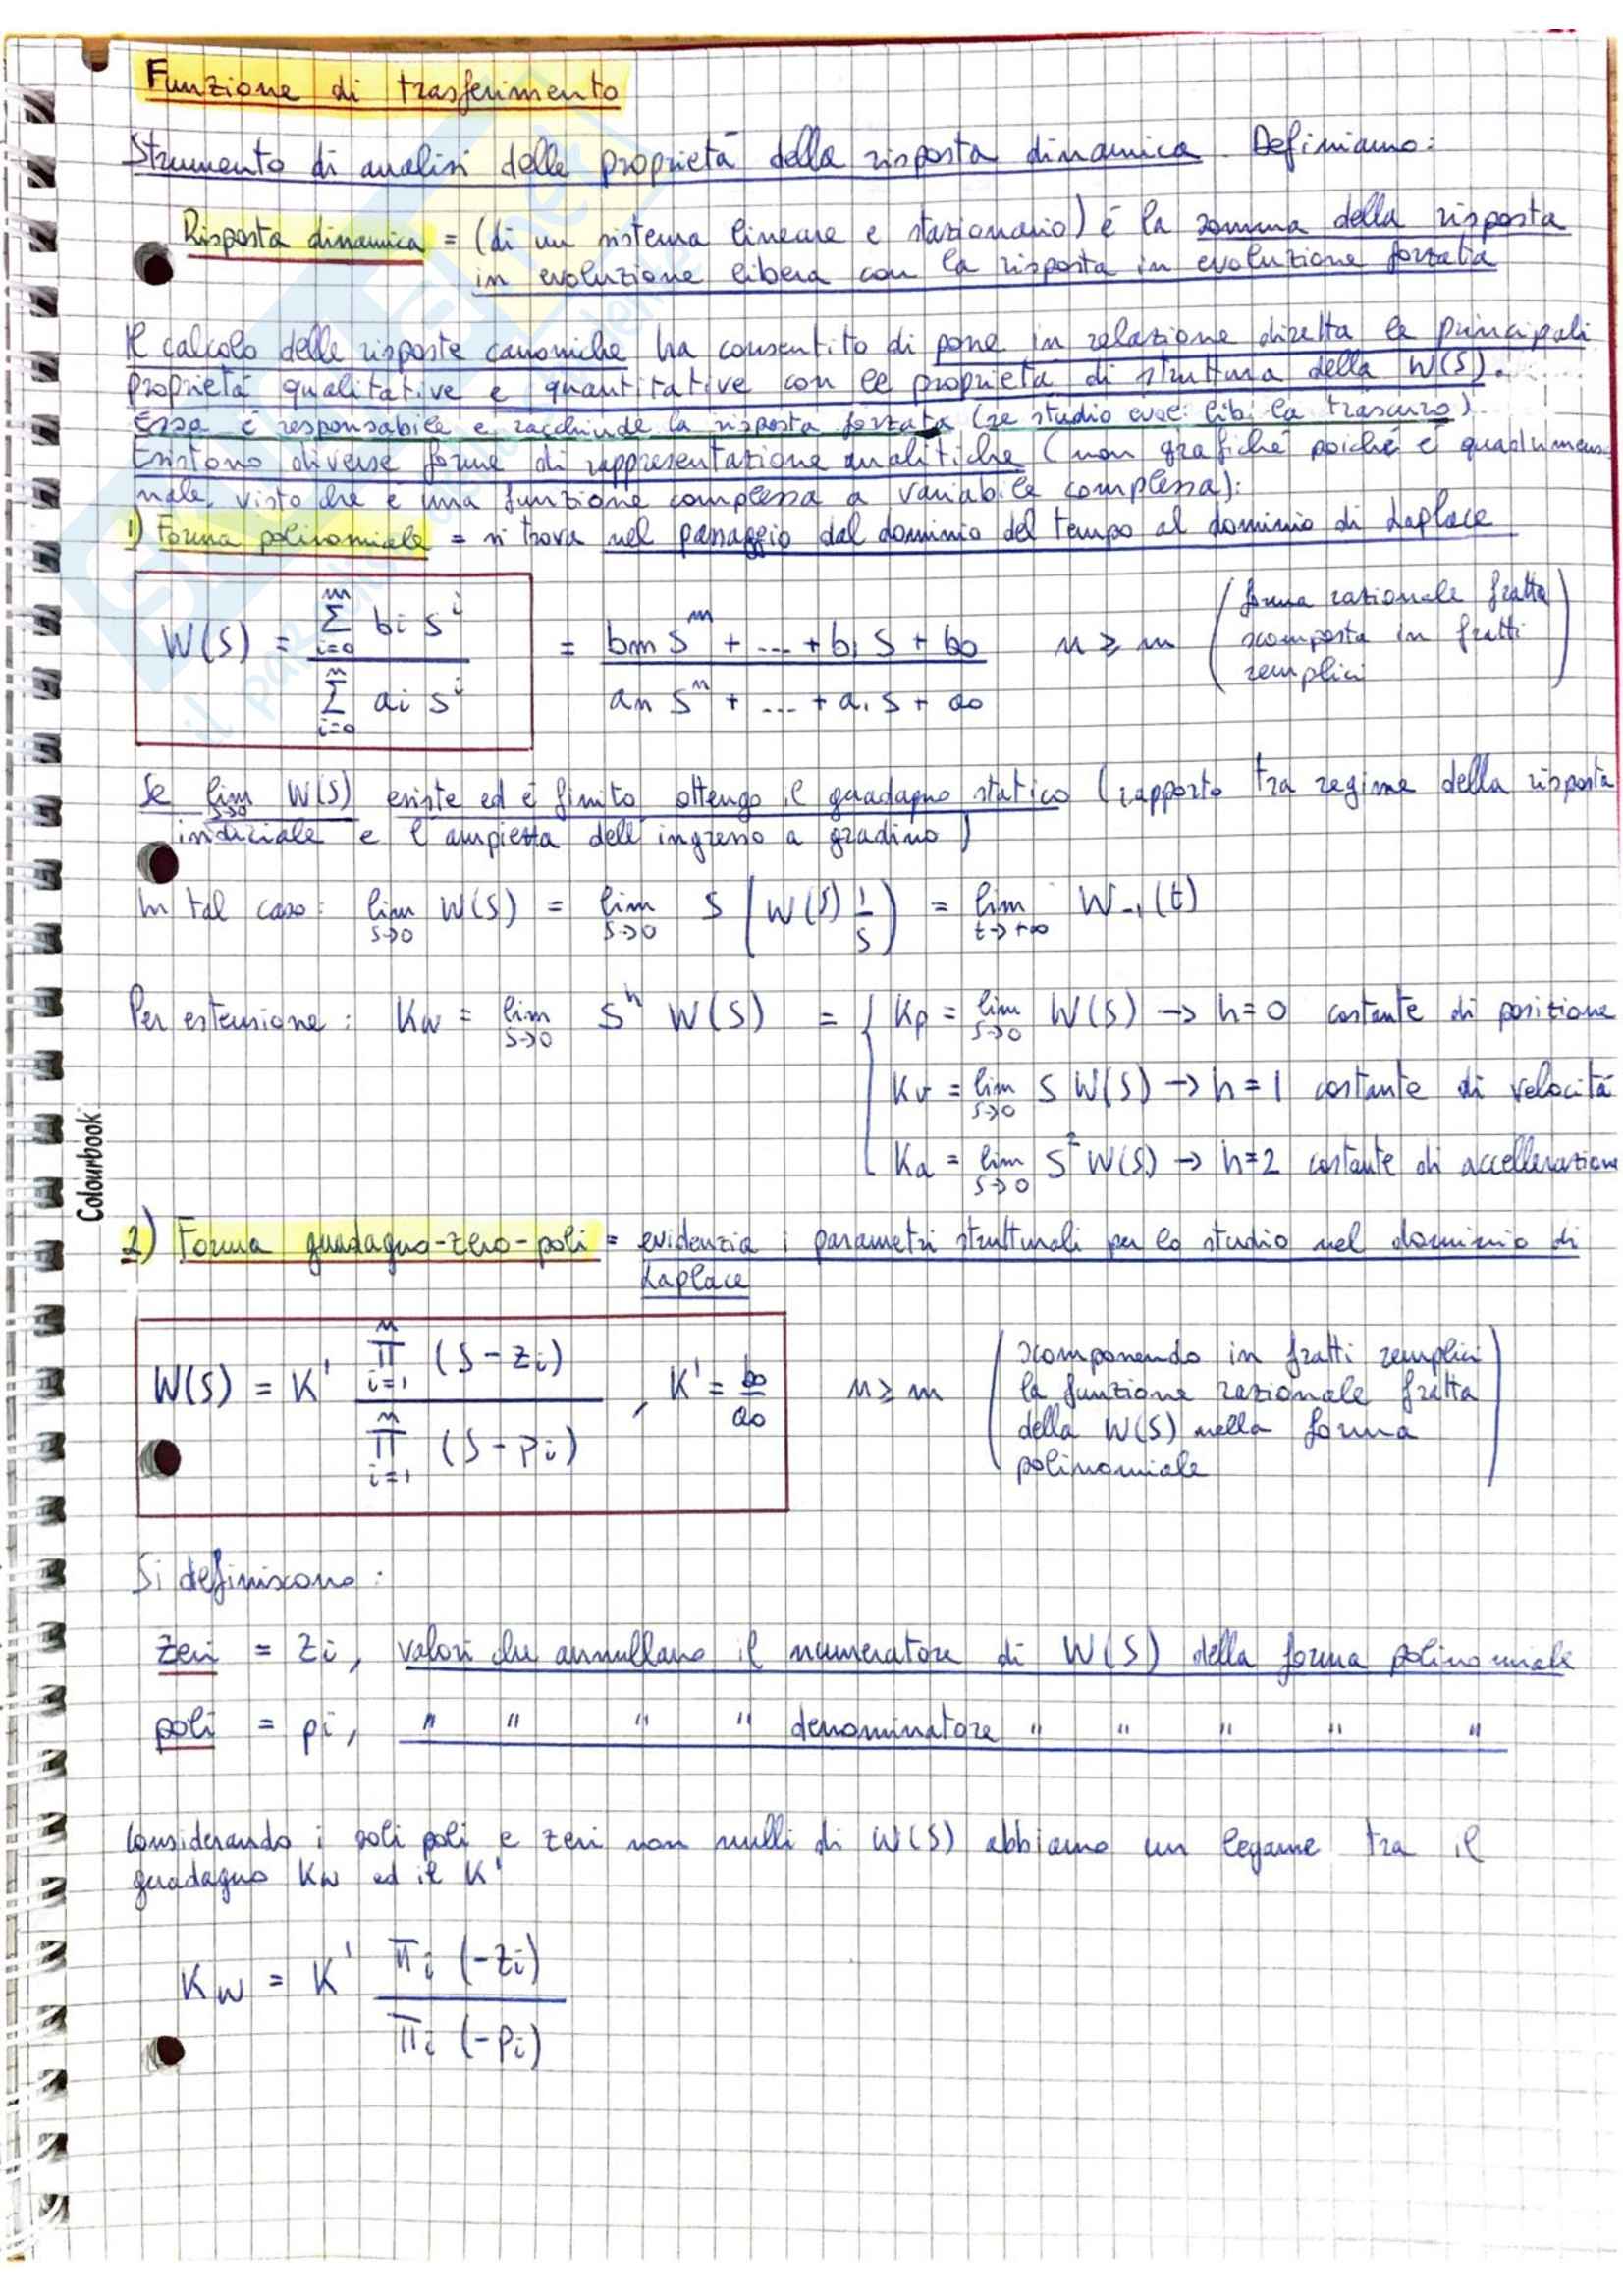 Funzione di trasferimento
Strumento di analisi delle proprietà della risposta dinamica. Definiamo:
Risposta dinamica = (di un sistema lineare e stazionario) è la somma della risposta
in evoluzione libera con la risposta in evoluzione forzata
Il calcolo delle risposte canoniche ha consentito di porre in relazione diretta le principali
proprietà qualitative e quantitative con le proprietà di struttura della W(S).
Essa è responsabile e racchiude la risposta forzata (se studio evol. lib. la trascuro).
Esistono diverse forme di rappresentazione analitiche (non grafiche poiché è quadrimensio-
nale, visto che è una funzione complessa a variabile complessa):
1) Forma polinomiale = si trova nel passaggio dal dominio del tempo al dominio di Laplace
W(S) = \frac{\sum_{i=0}^{m} bi s^i}{\sum_{i=0}^{n} ai s^i} = \frac{bm S^m + ... + b1 S + b0}{an S^n + ... + a1 s + a0} n ≥ m (forma razionale fratta
scomposta in fratti
semplici)
Se lim_{s→0} W(S) esiste ed è finito ottengo il guadagno statico (rapporto tra regime della risposta
indiciale e l'ampiezza dell'ingresso a gradino)
In tal caso: lim_{s→0} W(S) = lim_{s→0} S (W(S) \frac{1}{s}) = lim_{t→+∞} W_{-1}(t)
Per estensione: Kw = lim_{s→0} S^h W(S) = { Kp = lim_{s→0} W(S) → h=0 costante di posizione
Kv = lim_{s→0} S W(S) → h=1 costante di velocità
Ka = lim_{s→0} S^2 W(S) → h=2 costante di accellerazione
Colourbook
2) Forma guadagno-zero-poli = evidenzia i parametri strutturali per lo studio nel dominio di
Laplace
W(S) = K' \frac{\prod_{i=1}^{m} (S-zi)}{\prod_{i=1}^{n} (S-pi)}, K' = \frac{b0}{a0} n ≥ m (scomponendo in fratti semplici
la funzione razionale fratta
della W(S) nella forma
polinomiale)
Si definiscono:
zeri = zi, valori che annullano il numeratore di W(S) della forma polinomiale
poli = pi, " " " " denominatore " " " " "
Considerando i soli poli e zeri non nulli di W(S) abbiamo un legame tra il
guadagno Kw ed il K'
Kw = K' \frac{\prod_i (-zi)}{\prod_i (-pi)}